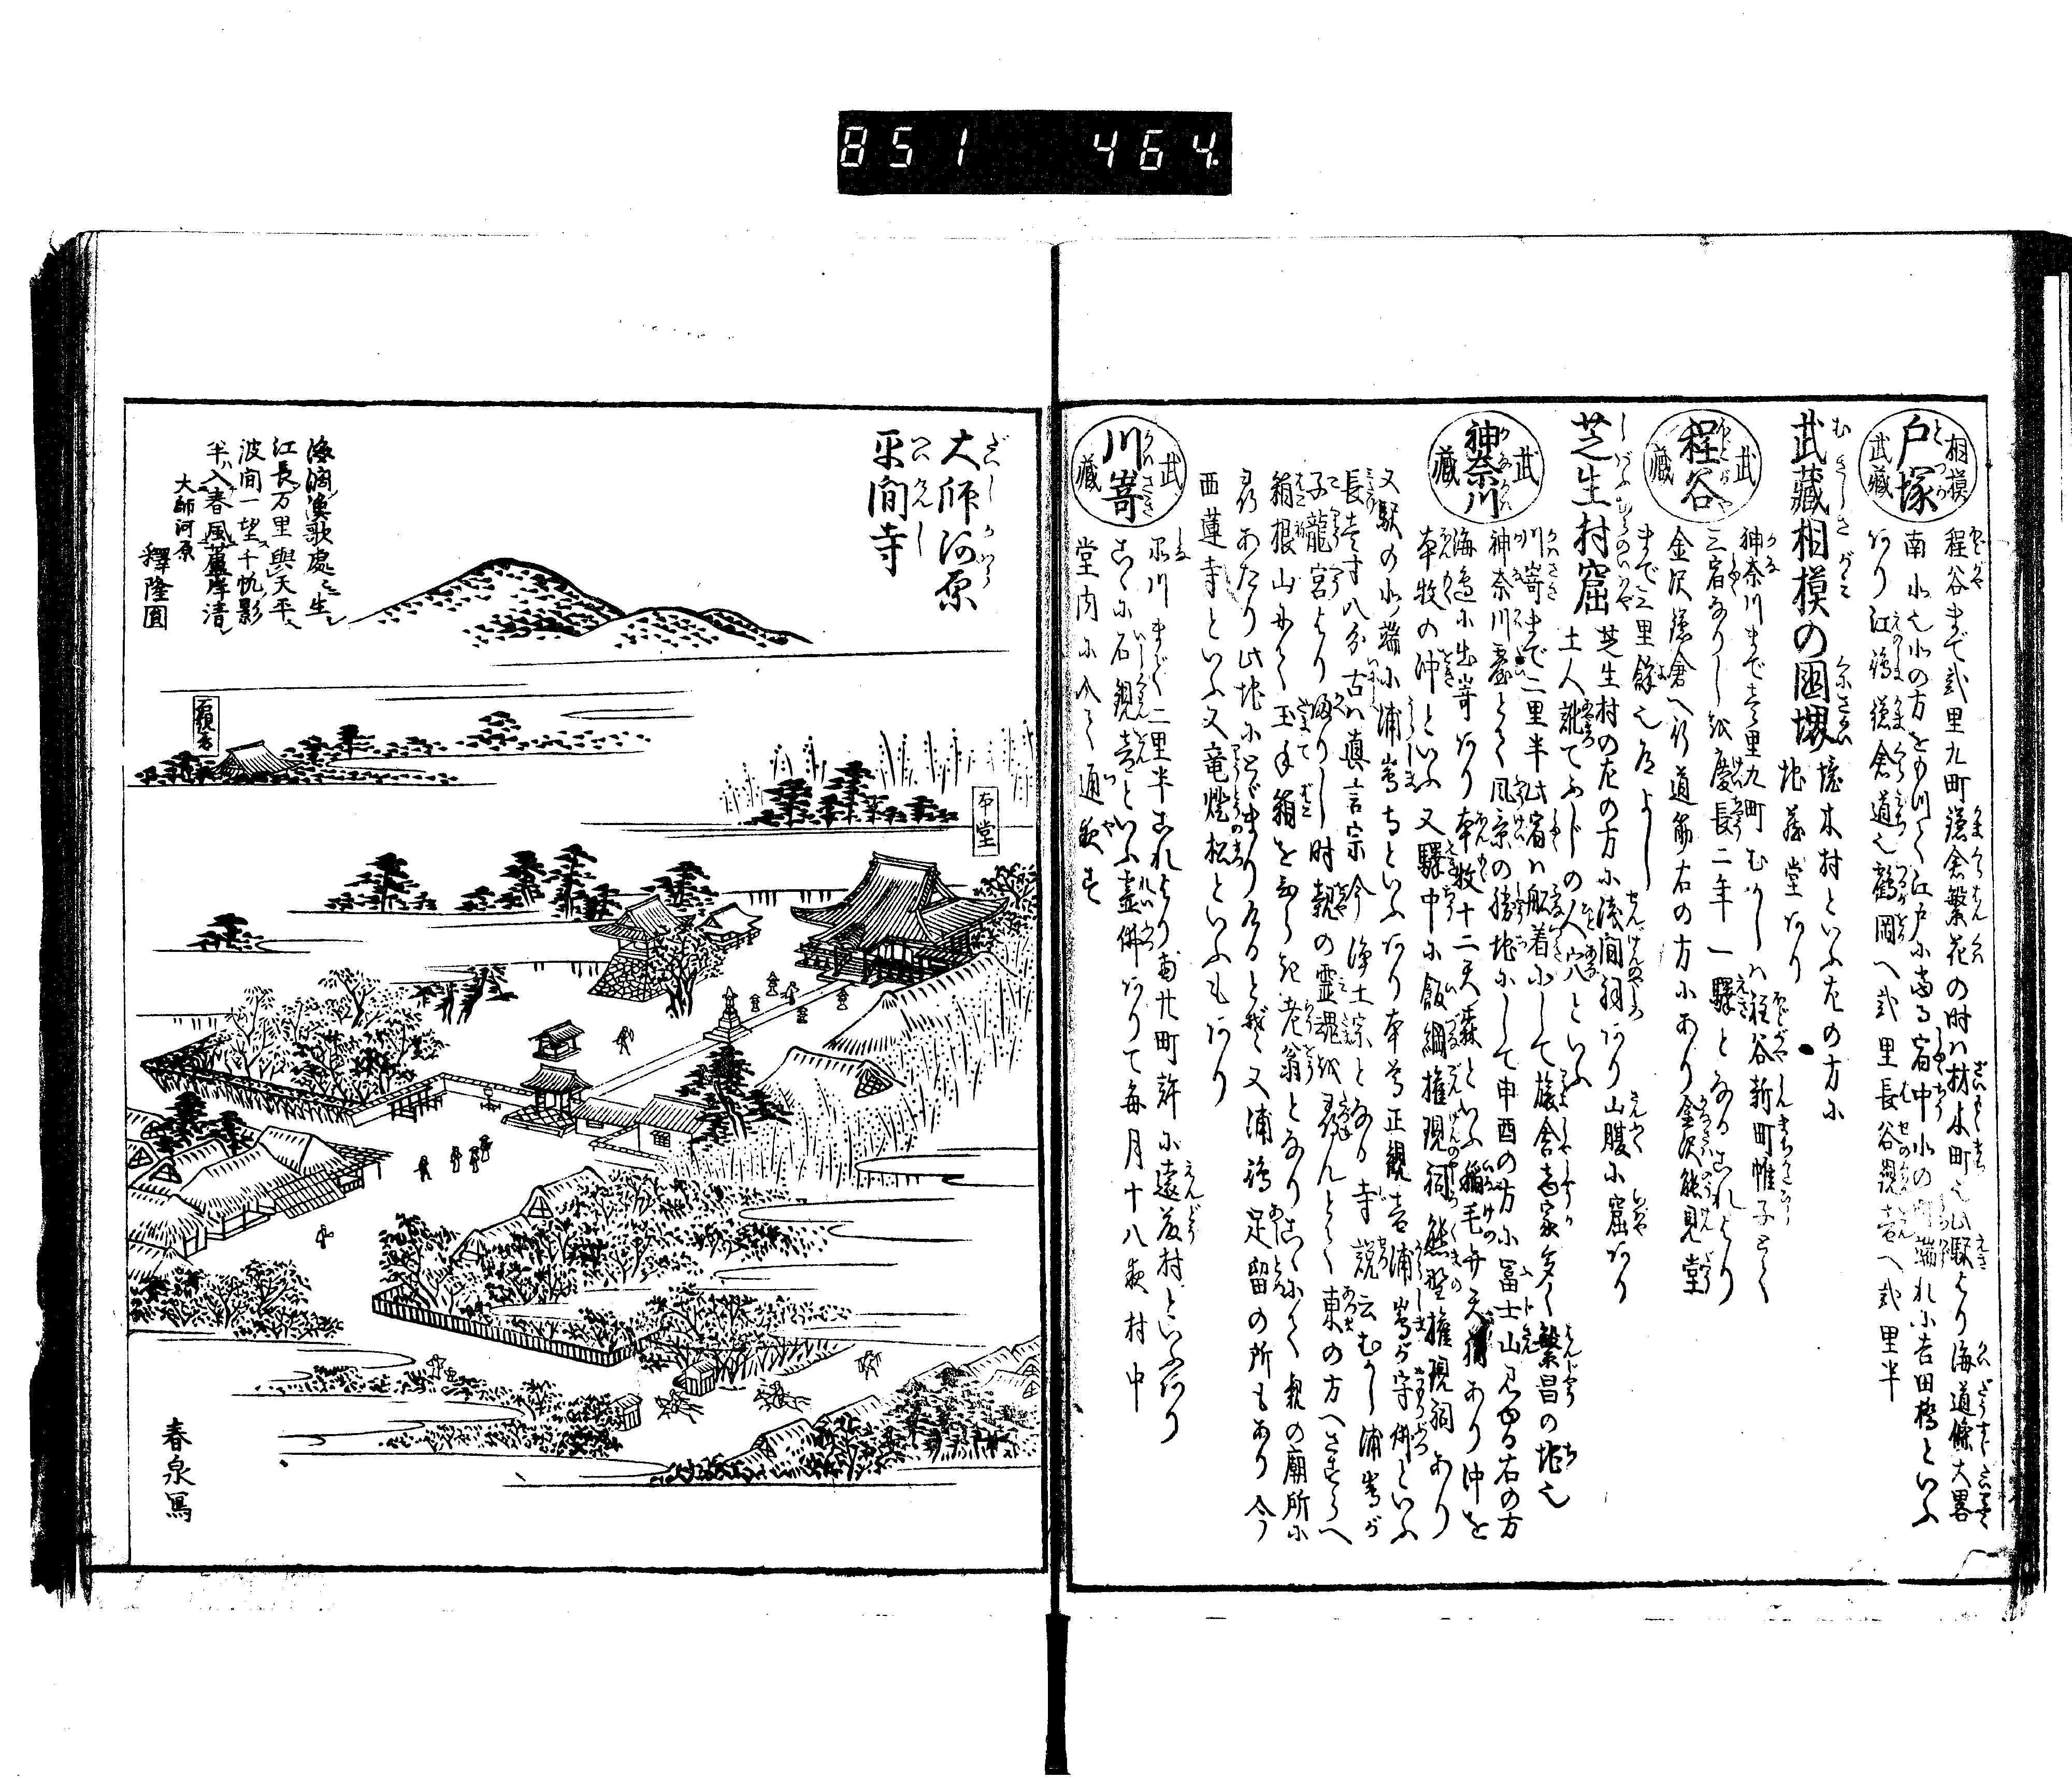 851 464.
相模
武藏
戸塚
程谷まで弐里九町鎌倉繁花の時ハ材木町也此駅より海道條大畧
南北也北の方をゆけバ江戸に当る宿中北の町端れに吉田橋といふ
あり江の嶋鎌倉道也鶴岡へ弐里長谷観音へ弐里半
武藏相模の国堺
境木村といふ左の方に
地蔵堂あり
武藏
程谷
神奈川まで壱里九町むかしハ程谷新町帷子とて
三宿なりしを慶長二年一驛となるこれより
金沢鎌倉へ行道筋右の方にあり金沢能見堂
まで三里餘也
芝生村窟
芝生村の左の方に浅間祠あり山腹に窟あり
土人訛てふじの人穴といふ
武藏
神奈川
川崎まで二里半此宿ハ船着にして旅舎商家多く繁昌の地也
神奈川臺とて風景の勝地にして申酉の方に冨士山見ゆる右の方
海邊に出崎あり本牧十二天森といふ稲毛弁天社あり沖を
本牧の沖といふ又驛中に飯綱権現祠熊野権現祠あり
又駅の北端に浦嶌寺といふあり本尊正観音浦嶌が守佛といふ
長壱寸八分古ハ眞言宗今浄土宗となる寺説云むかし浦嶌が
子龍宮より帰りし時親の霊魂を尋んとて東の方へさすらへ
箱根山にて玉手箱をひらき老翁となりこゝにて親の廟所に
尋あたり此地にとゞまり居るとぞ又浦嶋足留の所もあり今
西蓮寺といふ又竜燈松といふもあり
武藏
川崎
品川まで二里半これより南廿町許に遠藤村といふあり
こゝに石観音といふ霊佛ありて毎月十八夜村中
堂内に入て通夜す
大師河原
平間寺
漁歌處々生
江長万里與天平
波間一望千帆影
半入春風蘆岸清
大師河原
釋隆圓
石観音
本堂
春泉寫